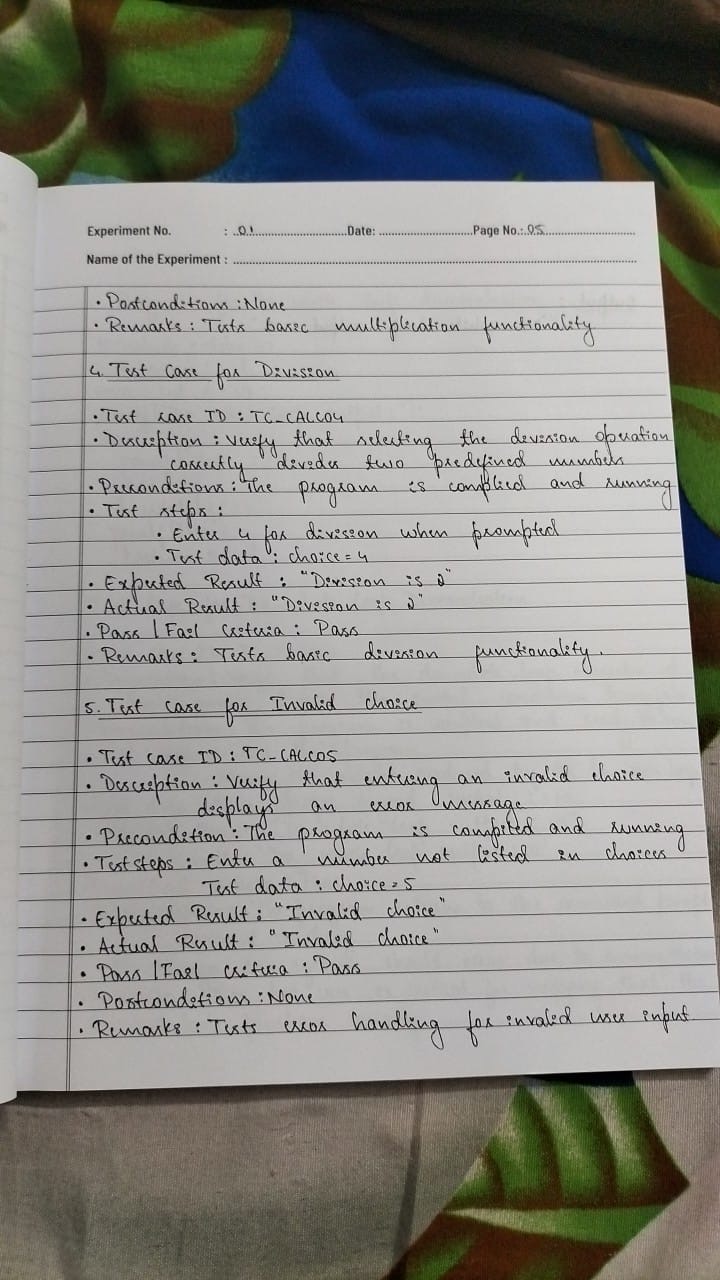 Experiment No. : 01 Date: Page No.: 05
Name of the Experiment :
• Postconditions : None
• Remarks : Tests basic multiplication functionality
4. Test Case for Division
• Test case ID : TC_CALC04
• Description : Verify that selecting the division operation
correctly divides two predefined numbers
• Preconditions : The program is complied and running
• Test steps :
• Enter 4 for division when prompted
• Test data : choice = 4
• Expected Result : "Division is 0"
• Actual Result : "Division is 0"
• Pass | Fail criteria : Pass
• Remarks : Tests basic division functionality.
5. Test Case for Invalid choice
• Test case ID : TC_CALC05
• Description : Verify that entering an invalid choice
displays an error message
• Precondition : The program is compited and running
• Test steps : Enter a number not listed in choices
Test data : choice = 5
• Expected Result : "Invalid choice"
• Actual Result : "Invalid choice"
• Pass | Fail criteria : Pass
• Postconditions : None
• Remarks : Tests error handling for invalid user input